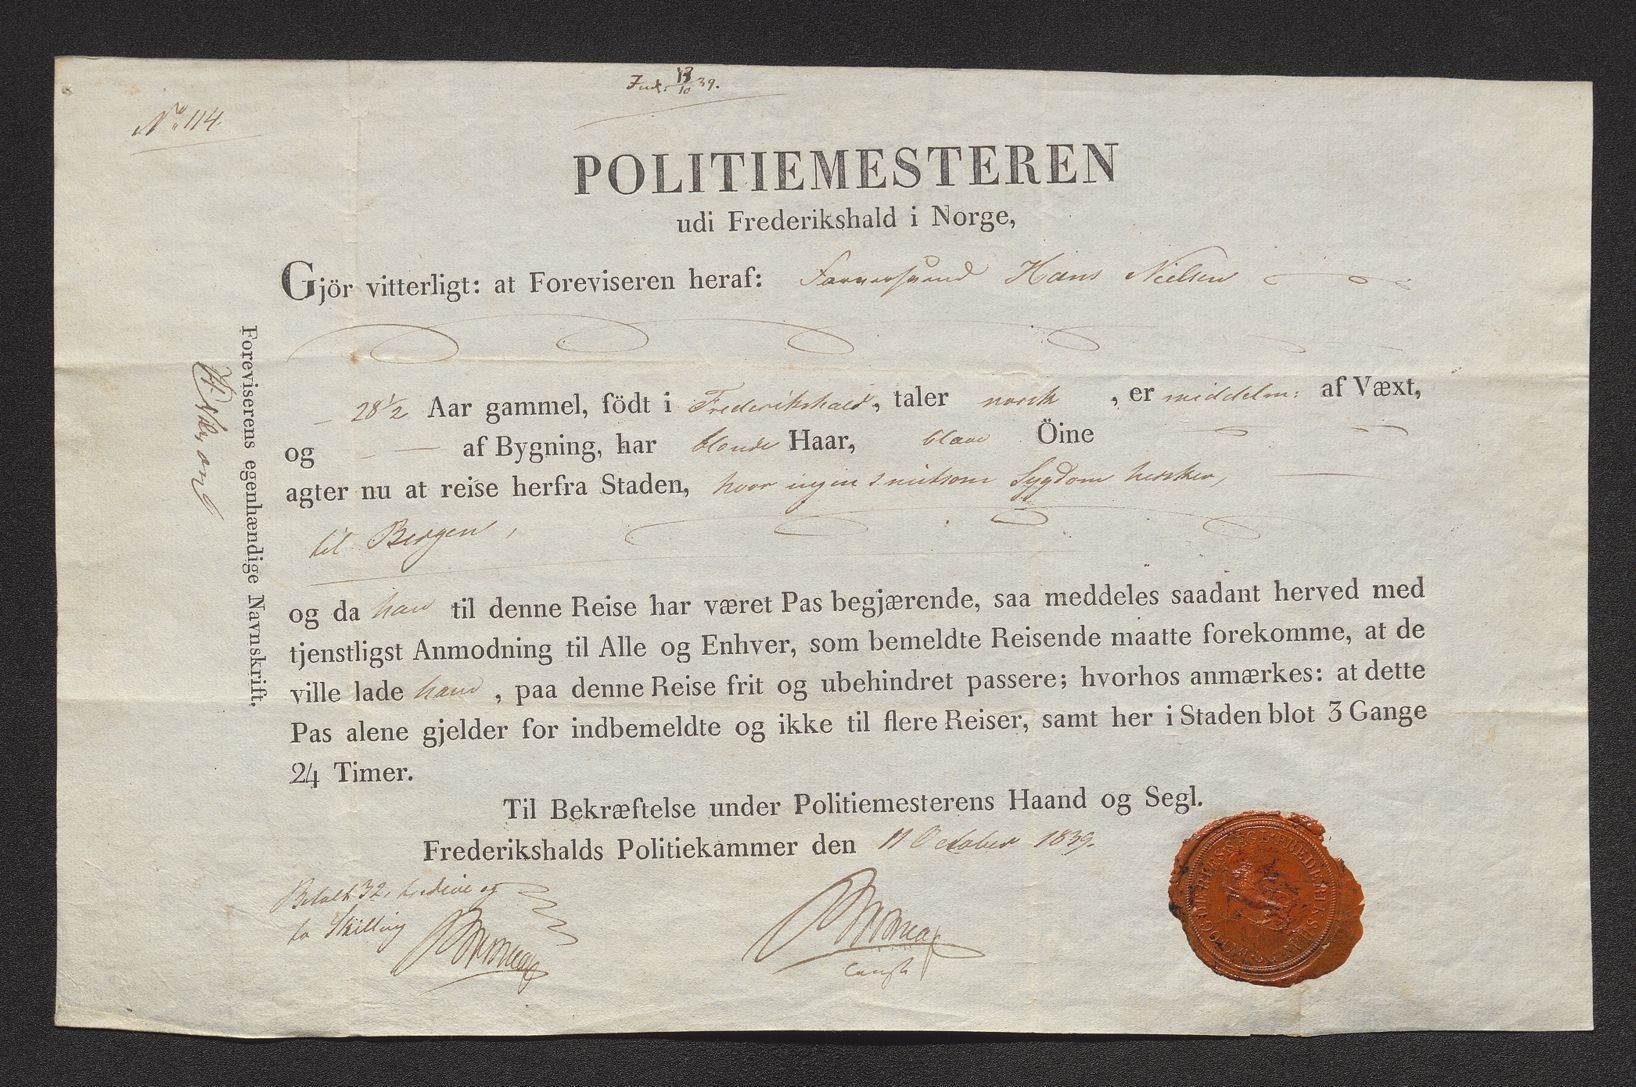 Ind. 13/10 39.
No 114.
POLITIEMESTEREN
udi Frederikshald i Norge,
Gjör vitterligt: at Foreviseren heraf: Farversvend Hans Nielsen
28 1/2 Aar gammel, födt i Frederikshald, taler norsk, er middelm: af Væxt,
og af Bygning, har blonde Haar, blaae Öine
agter nu at reise herfra Staden, hvor ingen smitsom Sygdom hersker,
til Bergen,
og da han til denne Reise har været Pas begjærende, saa meddeles saadant herved med
tjenstligst Anmodning til Alle og Enhver, som bemeldte Reisende maatte forekomme, at de
ville lade ham, paa denne Reise frit og ubehindret passere; hvorhos anmærkes: at dette
Pas alene gjelder for indbemeldte og ikke til flere Reiser, samt her i Staden blot 3 Gange
24 Timer.
Til Bekræftelse under Politiemesterens Haand og Segl.
Frederikshalds Politiekammer den 11 October 1839.
Betalt 32, tredive og
to Skilling
const
Foreviserens egenhændige Navnskrift.